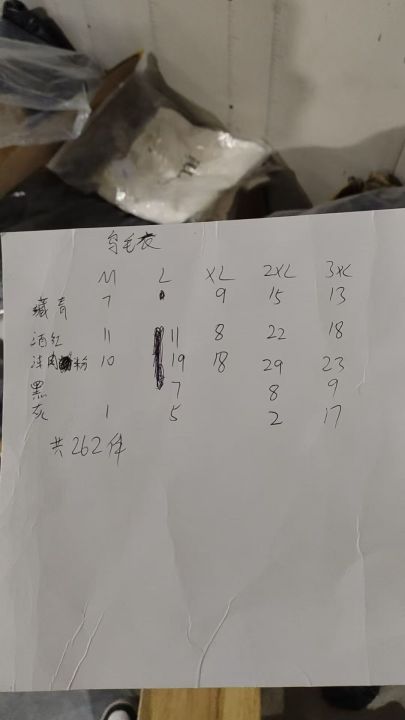 马毛衣
M L XL 2XL 3XL
藏青 7 9 15 13
酒红 11 11 8 22 18
浅肉粉 10 19 18 29 23
黑 7 8 9
灰 1 5 2 17
共262件